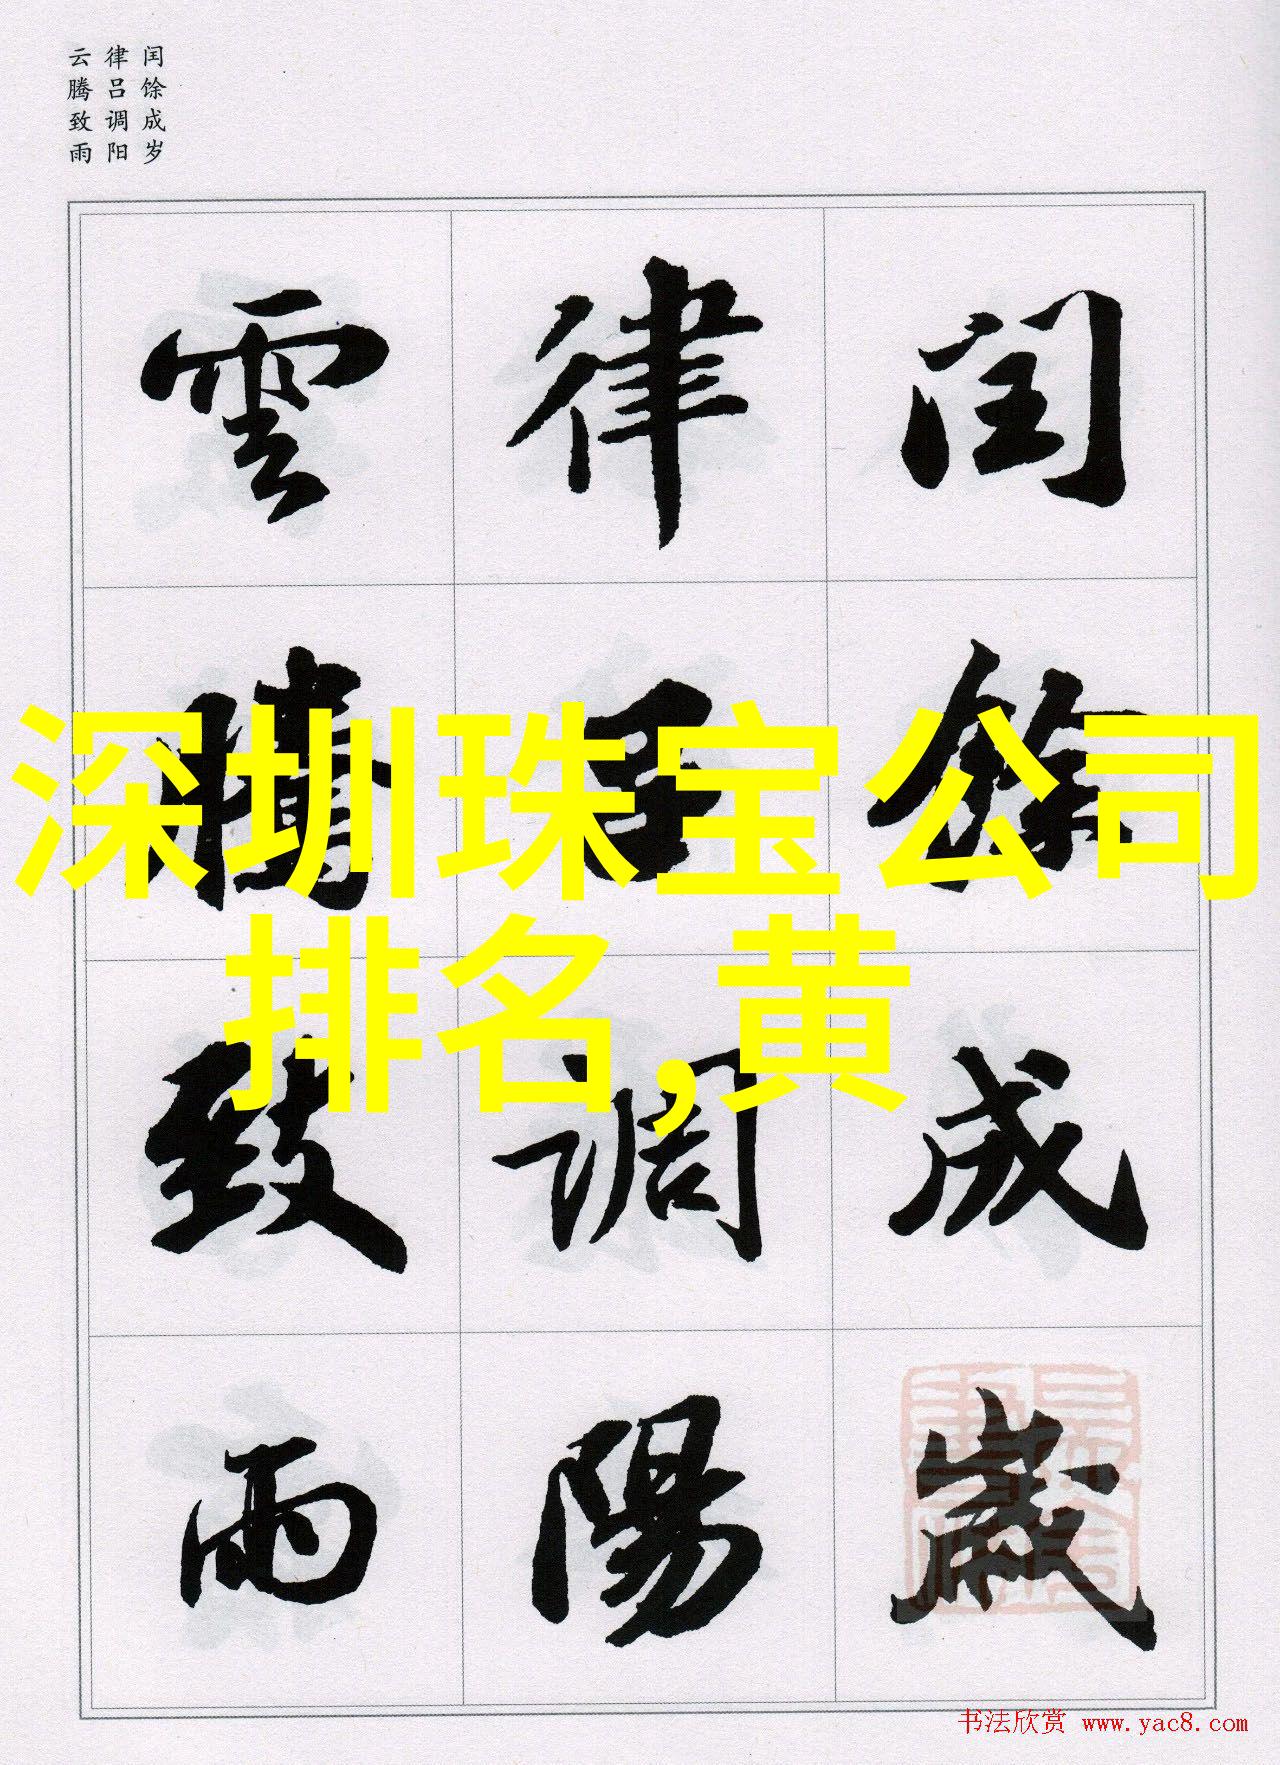 闰馀成岁
律吕调阳
云腾致雨
閏餘成歲
律吕調陽
雲騰致雨
深圳珠宝公司
排名,黄
书法欣赏 www.yac8.com